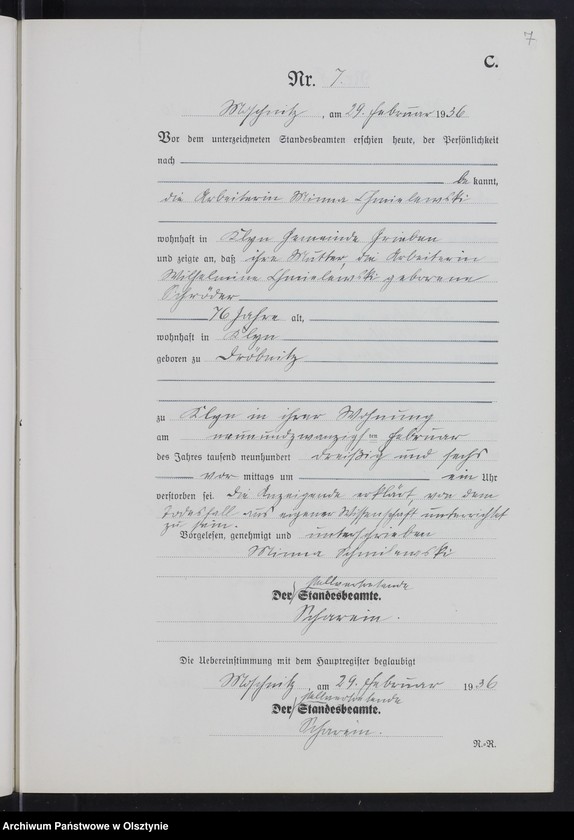 7
C.
Nr. 7.
Moschnitz, am 29. Februar 1936
Vor dem unterzeichneten Standesbeamten erschien heute, der Persönlichkeit
nach
be kannt,
die Arbeiterin Minna Chmielewski
wohnhaft in Klyn Gemeinde Grieben
und zeigte an, daß ihre Mutter, die Arbeiterin
Wilhelmine Chmielewski geborene
Schröder
76 Jahre alt,
wohnhaft in Klyn
geboren zu Dröbnitz
zu Klyn in ihrer Wohnung
am neunundzwanzigsten Februar
des Jahres tausend neunhundert dreißig und sechs
vor mittags um ein Uhr
verstorben sei. Die Anzeigende erklärt, von dem
Todesfall aus eigener Wissenschaft unterrichtet
zu sein.
Vorgelesen, genehmigt und unterschrieben
Minna Schmilewski
stellvertretende
Der Standesbeamte.
Scharein.
Die Uebereinstimmung mit dem Hauptregister beglaubigt
Moschnitz, am 29. Februar 1936
stellvertretende
Der Standesbeamte.
Scharein.
R.-R.
Archiwum Państwowe w Olsztynie